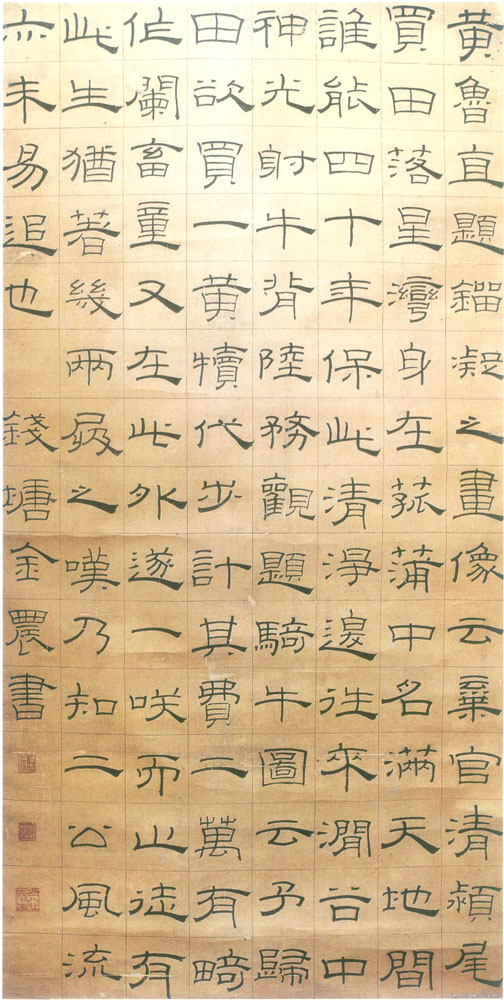 黃魯直題鎦凝之畫像云棄官清潁尾
買田落星灣身在菰蒲中名滿天地間
誰能四十年保此清淨邊往來澗谷中
神光射牛背陸務觀題騎牛圖云予歸
田欲買一黃犢代步計其費二萬有畸
作闌畜童又在此外遂一咲而止徒有
此生猶著幾兩屐之嘆乃知二公風流
亦未易追也 錢塘金農書